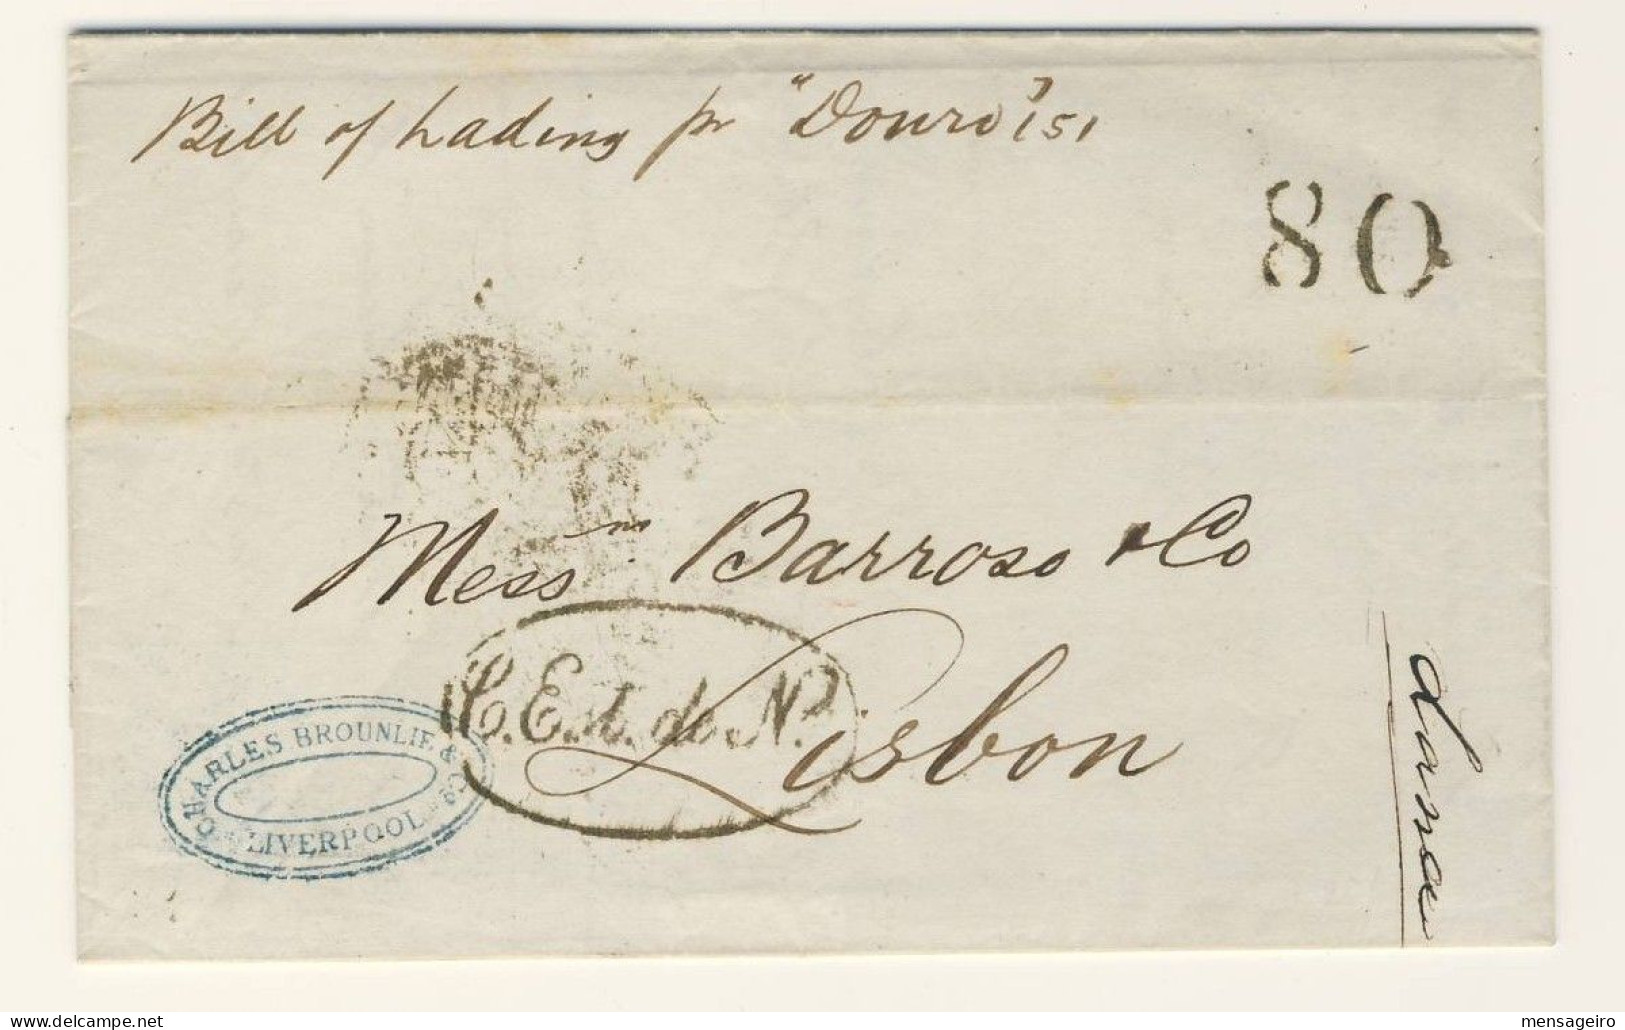 Bill of Lading pr "Douro" 151
80
Messrs Barroso & Co
Lisbon
C.E. d. de N.
CHARLES BROUNLIE & Co
LIVERPOOL
mensageiro
www.delcampe.net